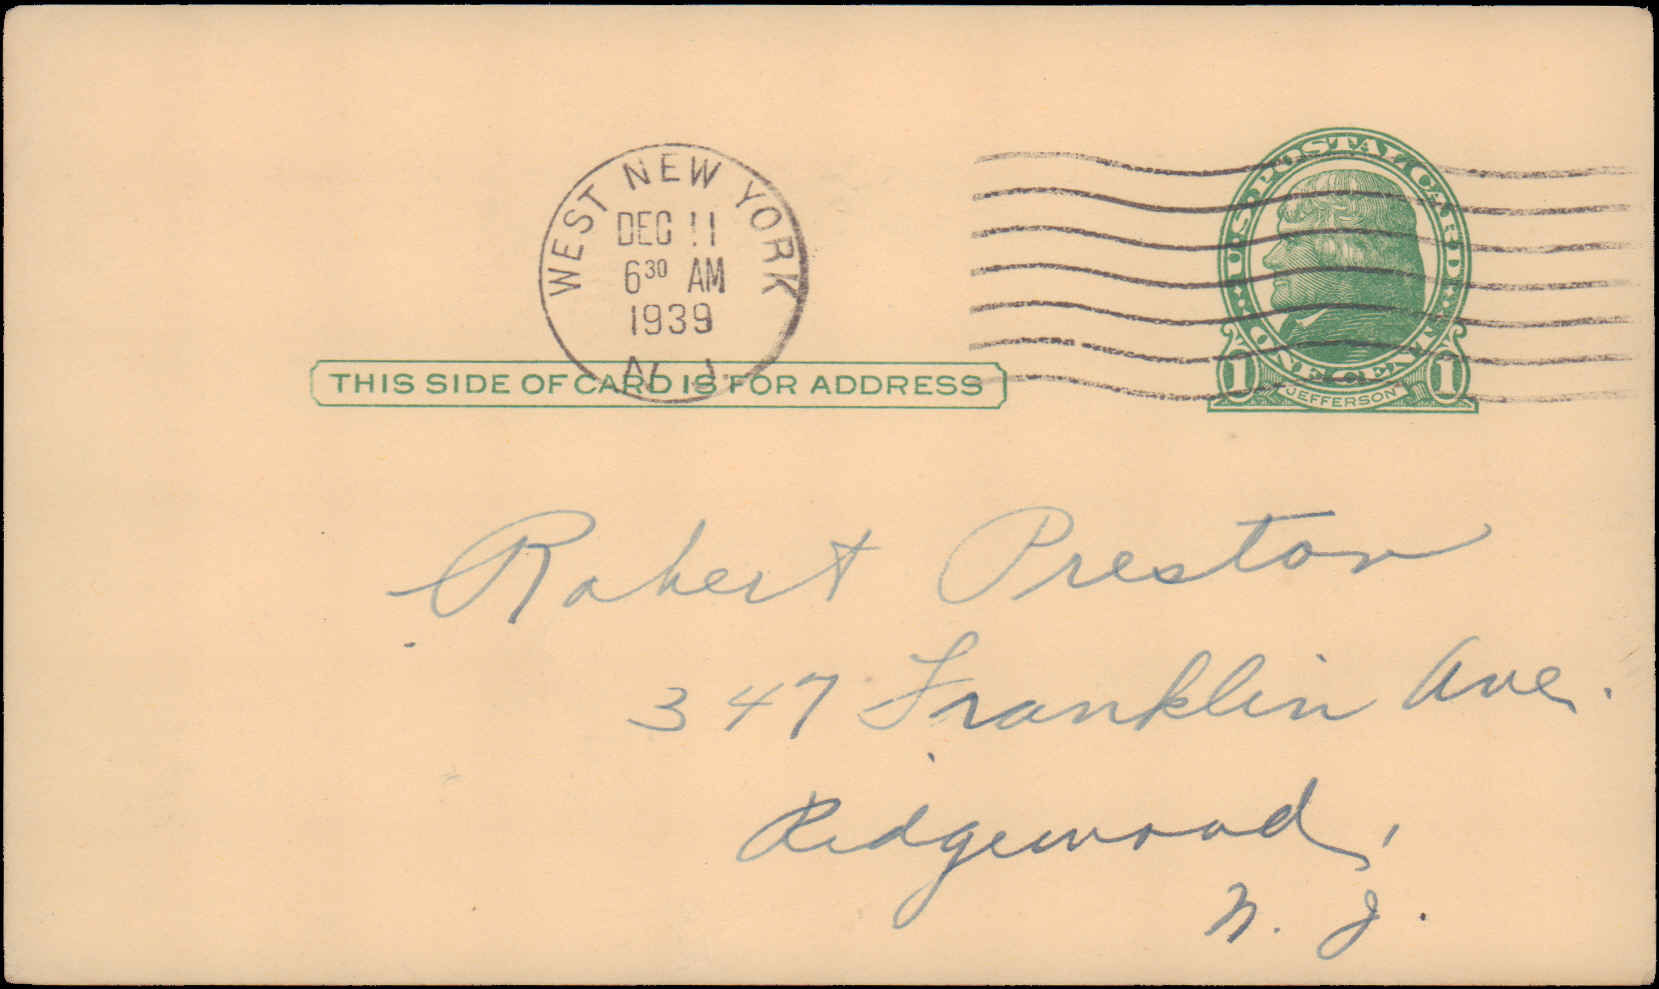 WEST NEW YORK
DEC 11
6 30 AM
1939
N. J.
U·S·POSTAL CARD
ONE CENT
1 JEFFERSON 1
THIS SIDE OF CARD IS FOR ADDRESS
Robert Preston
347 Franklin Ave.
Ridgewood,
N. J.